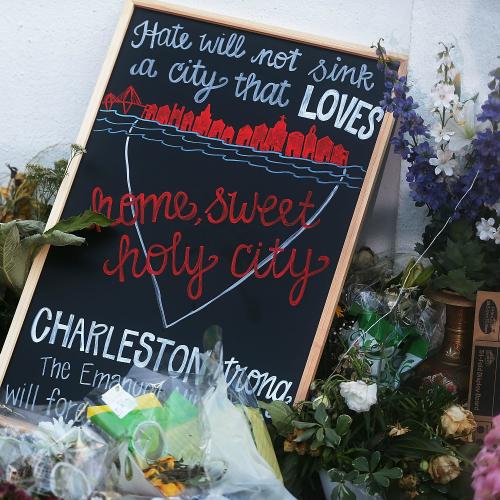 Hate will not sink
a city that LOVES
home, sweet
holy city
CHARLESTON Strong
The Emanuel
will